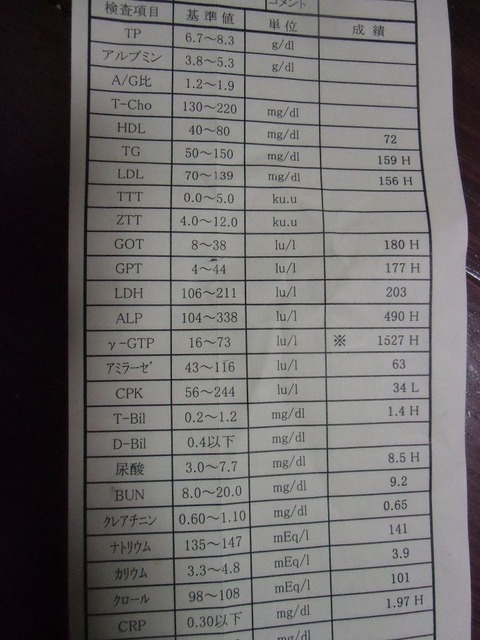 コメント
検査項目 基準値 単位 成績
TP 6.7～8.3 g/dl
アルブミン 3.8～5.3 g/dl
A/G比 1.2～1.9
T-Cho 130～220 mg/dl
HDL 40～80 mg/dl 72
TG 50～150 mg/dl 159 H
LDL 70～139 mg/dl 156 H
TTT 0.0～5.0 ku.u
ZTT 4.0～12.0 ku.u
GOT 8～38 lu/l 180 H
GPT 4～44 lu/l 177 H
LDH 106～211 lu/l 203
ALP 104～338 lu/l 490 H
γ-GTP 16～73 lu/l ※ 1527 H
ｱﾐﾗｰｾﾞ 43～116 lu/l 63
CPK 56～244 lu/l 34 L
T-Bil 0.2～1.2 mg/dl 1.4 H
D-Bil 0.4以下 mg/dl
尿酸 3.0～7.7 mg/dl 8.5 H
BUN 8.0～20.0 mg/dl 9.2
ｸﾚｱﾁﾆﾝ 0.60～1.10 mg/dl 0.65
ﾅﾄﾘｳﾑ 135～147 mEq/l 141
ｶﾘｳﾑ 3.3～4.8 mEq/l 3.9
ｸﾛｰﾙ 98～108 mEq/l 101
CRP 0.30以下 mg/dl 1.97 H